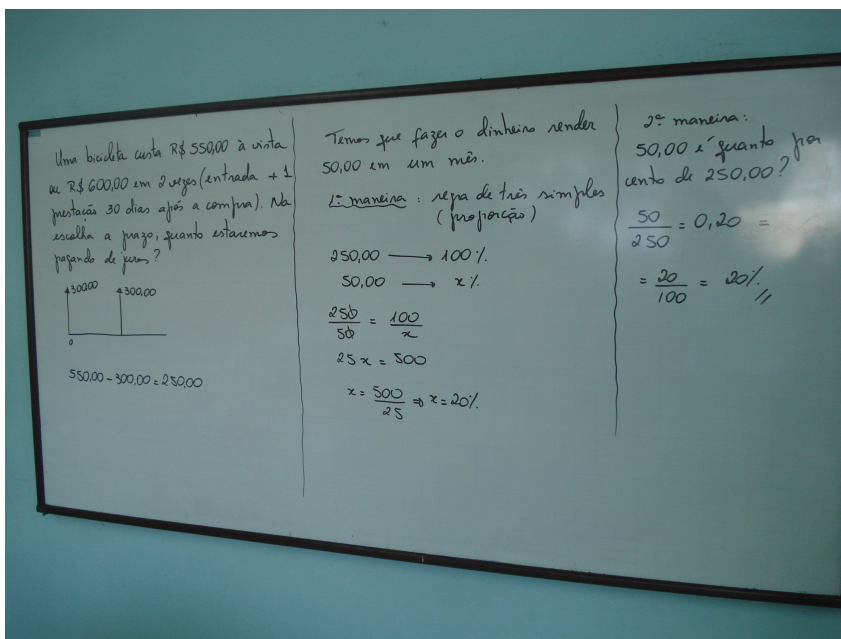 Uma bicicleta custa R$ 550,00 à vista
ou R$ 600,00 em 2 vezes (entrada + 1
prestação 30 dias após a compra). Na
escolha a prazo, quanto estaremos
pagando de juros?
300,00 300,00
0
550,00 - 300,00 = 250,00
Temos que fazer o dinheiro render
50,00 em um mês.
1ª maneira : regra de três simples
(proporção)
250,00 → 100%.
50,00 → x%.
250/50 = 100/x
25x = 500
x = 500/25 ⇒ x = 20%.
2ª maneira:
50,00 é quanto por
cento de 250,00?
50/250 = 0,20 =
= 20/100 = 20%//